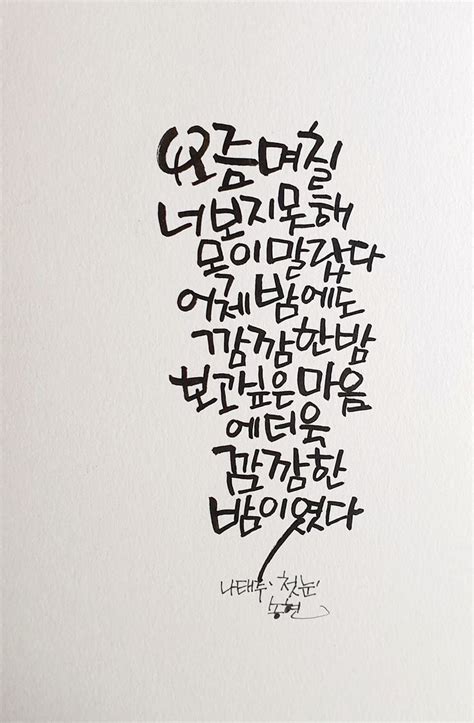 요즘며칠
너보지못해
목이말랐다
어제밤에도
깜깜한밤
보고싶은마음
에더욱
깜깜한
밤이었다
나태주·'첫눈'
송현